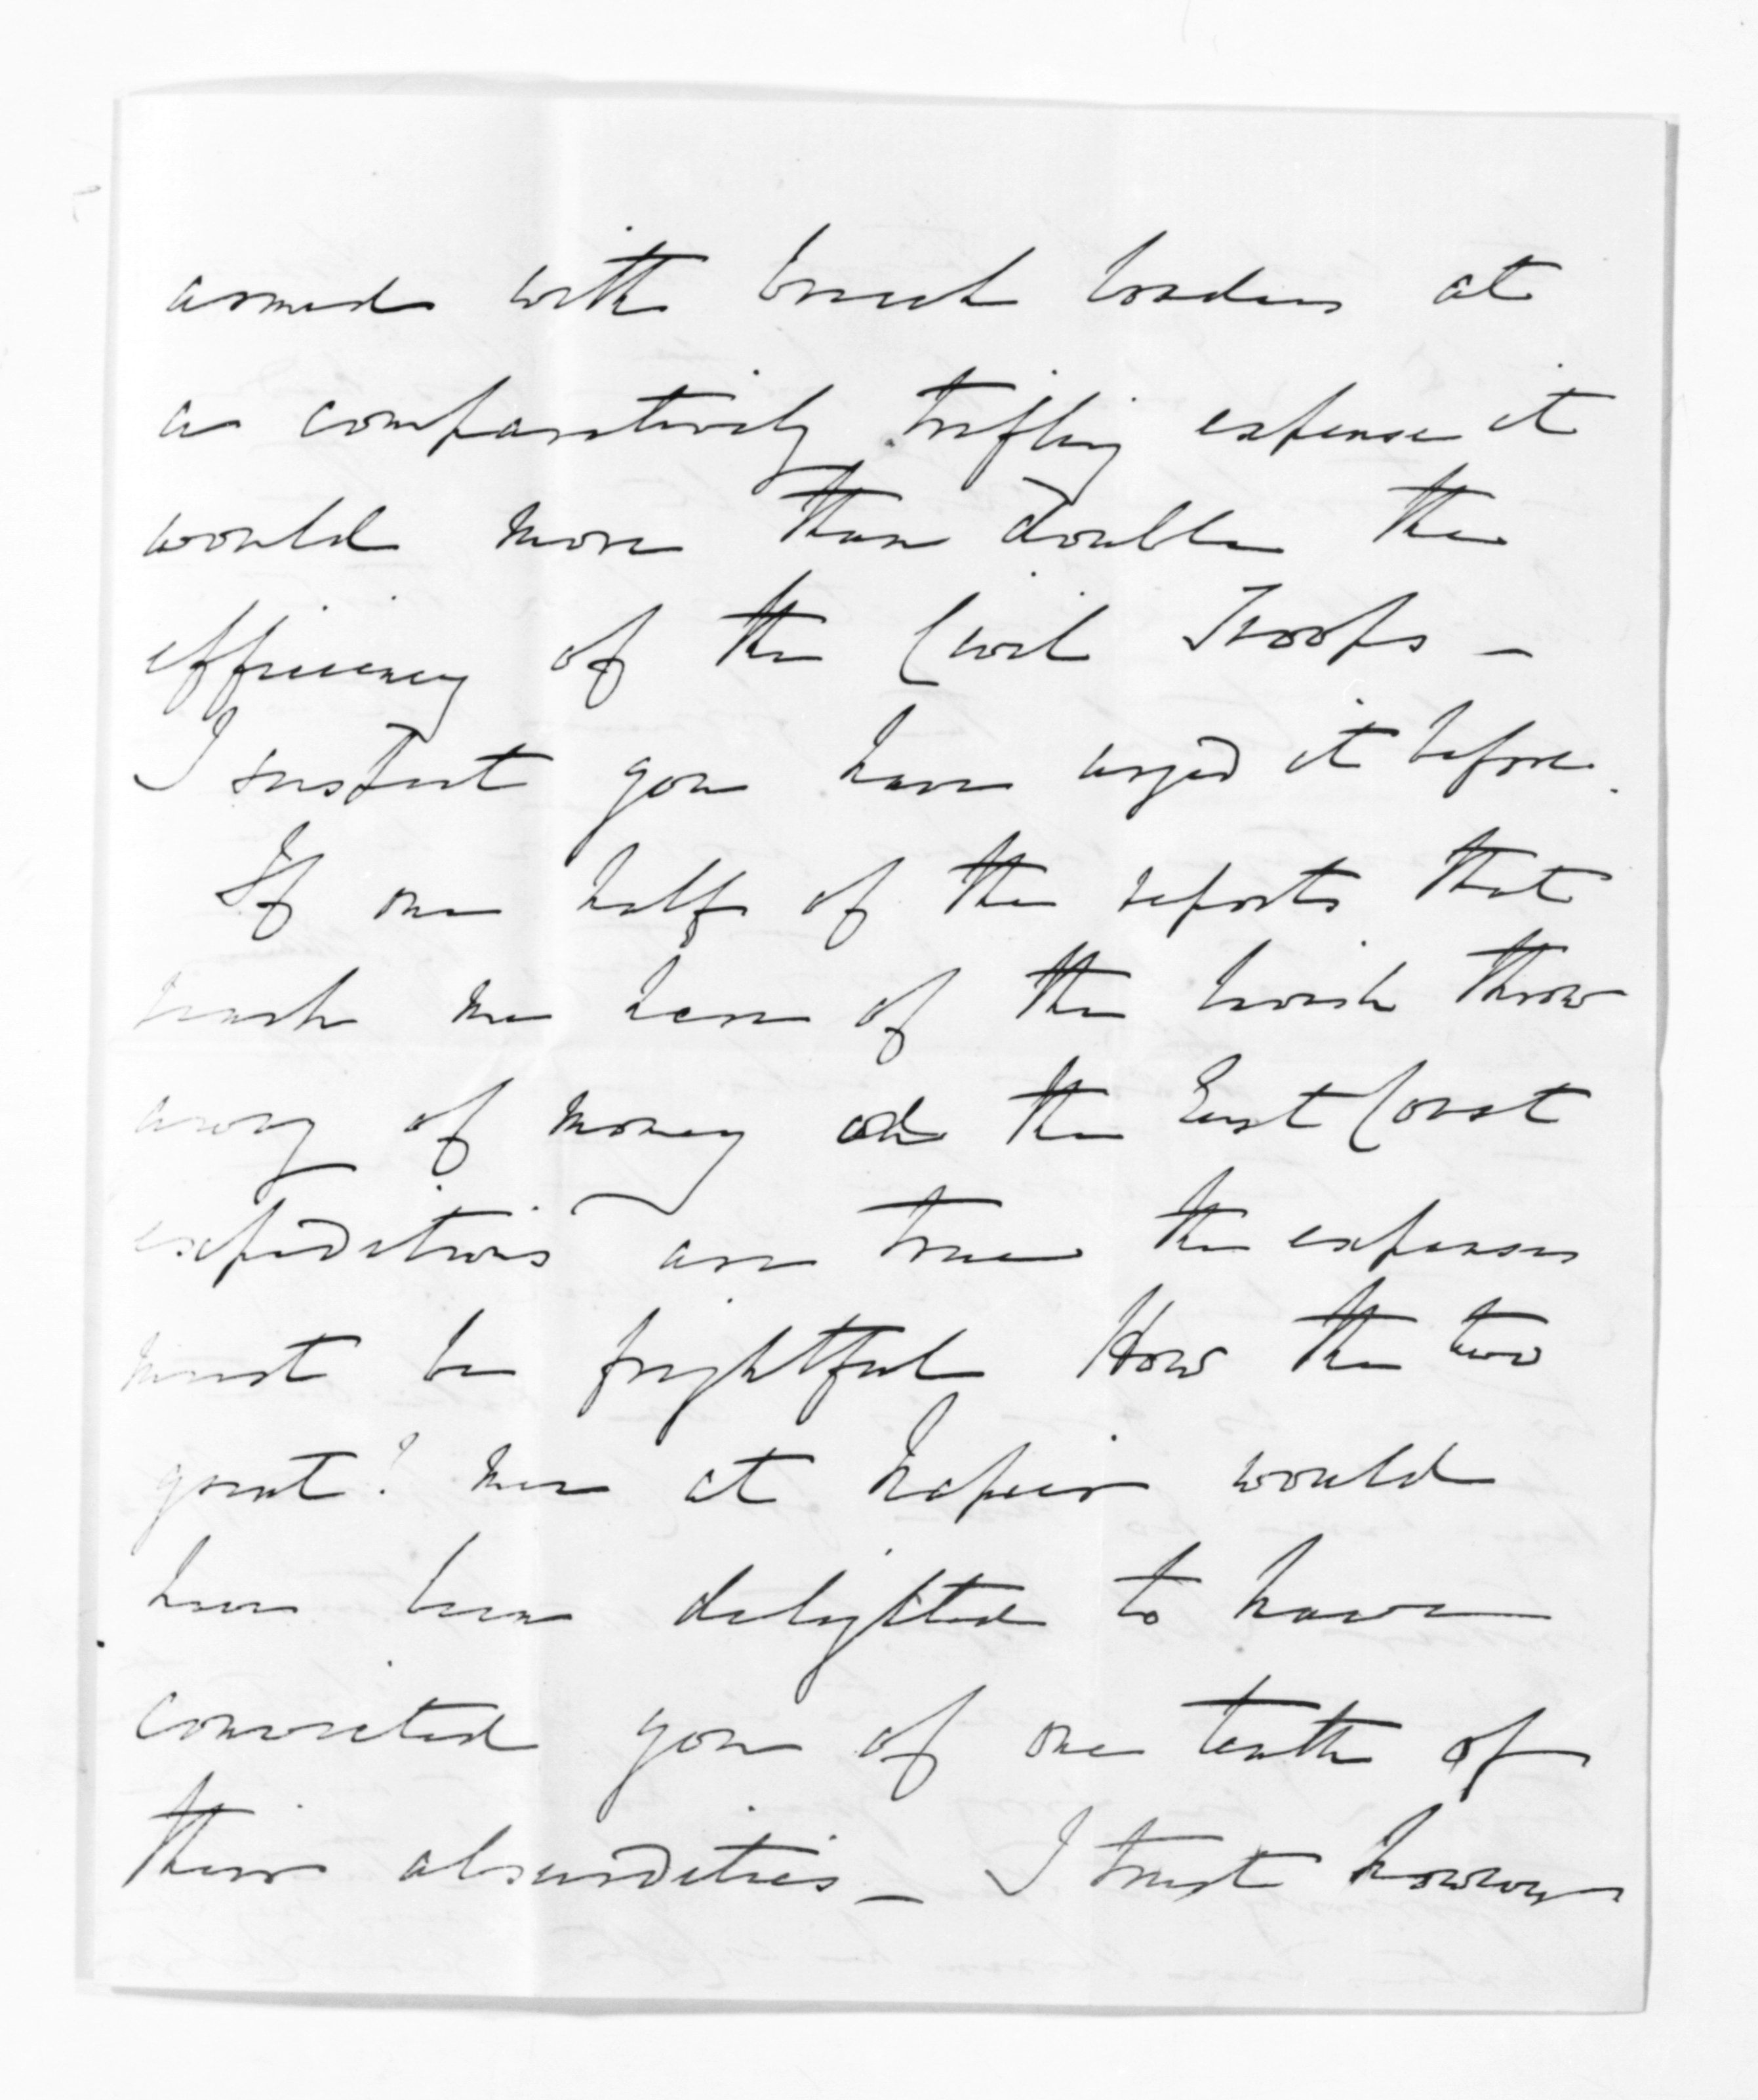 armed with breech loaders at
a comparatively trifling expense it
would more than double the
efficiency of the Civil Troops —
I suspect you have urged it before.
If one half of the reports that
reach me here of the lavish throw
away of money on the East Coast
expeditions are true the expenses
must be frightful How the two
great? men at Napier would
have been delighted to have
convicted you of one tenth of
their absurdities — I trust however